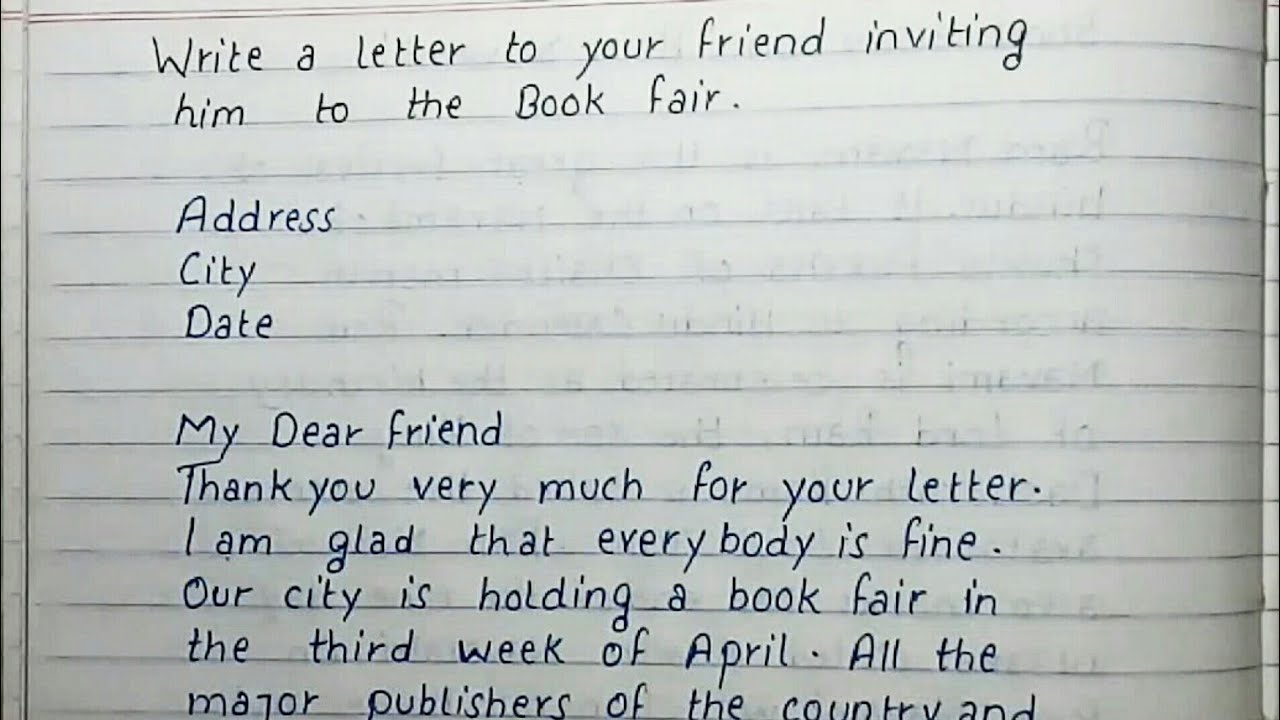 Write a letter to your friend inviting
him to the Book fair.
Address
City
Date
My Dear friend
Thank you very much for your letter.
I am glad that everybody is fine.
Our city is holding a book fair in
the third week of April. All the
major publishers of the country and